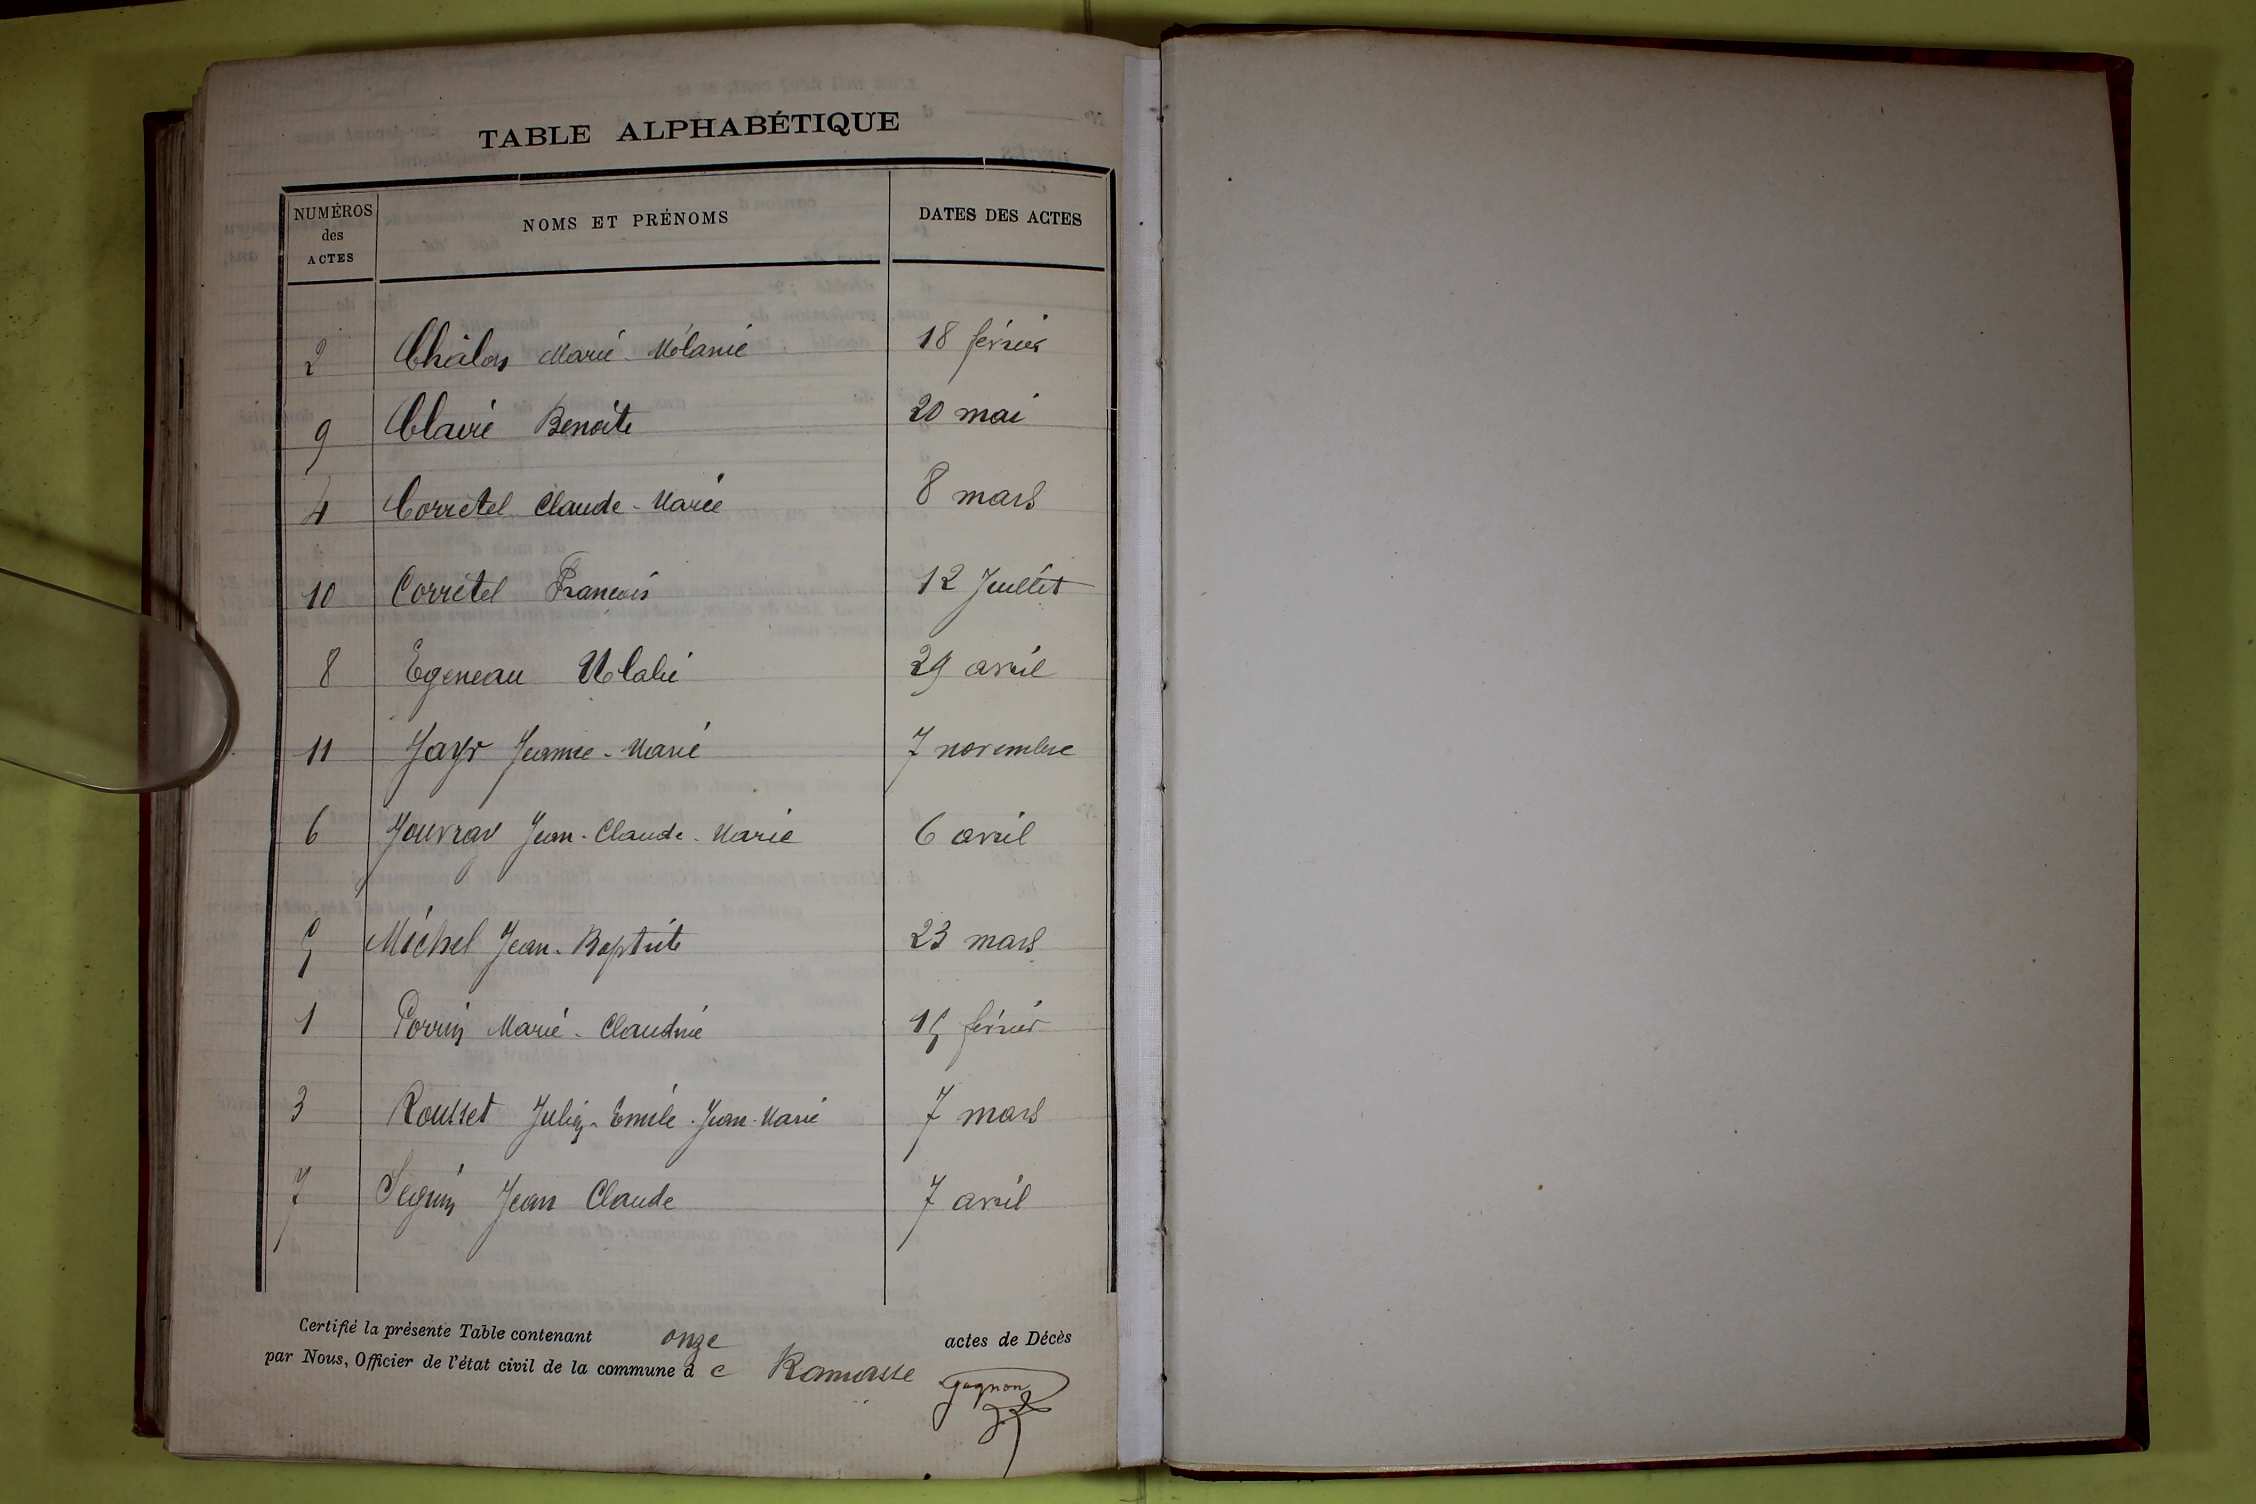 TABLE ALPHABÉTIQUE
NUMÉROS des ACTES NOMS ET PRÉNOMS DATES DES ACTES
2 Châlon Marie-Mélanie 18 février
9 Clavié Benoite 20 mai
4 Corretel Claude-Marie 8 mars
10 Corretel François 12 Juillet
8 Egeneau Ulalie 29 avril
11 Jayr Jeanne-Marie 7 novembre
6 Jouvray Jean-Claude-Marie 6 avril
5 Michel Jean-Baptiste 23 mars
1 Perrin Marie-Claudine 15 février
3 Rousset Julien-Emile-Jean-Marie 7 mars
7 Seguin Jean Claude 7 avril
Certifié la présente Table contenant onze actes de Décès
par Nous, Officier de l'état civil de la commune de Ramasse
Gagnon